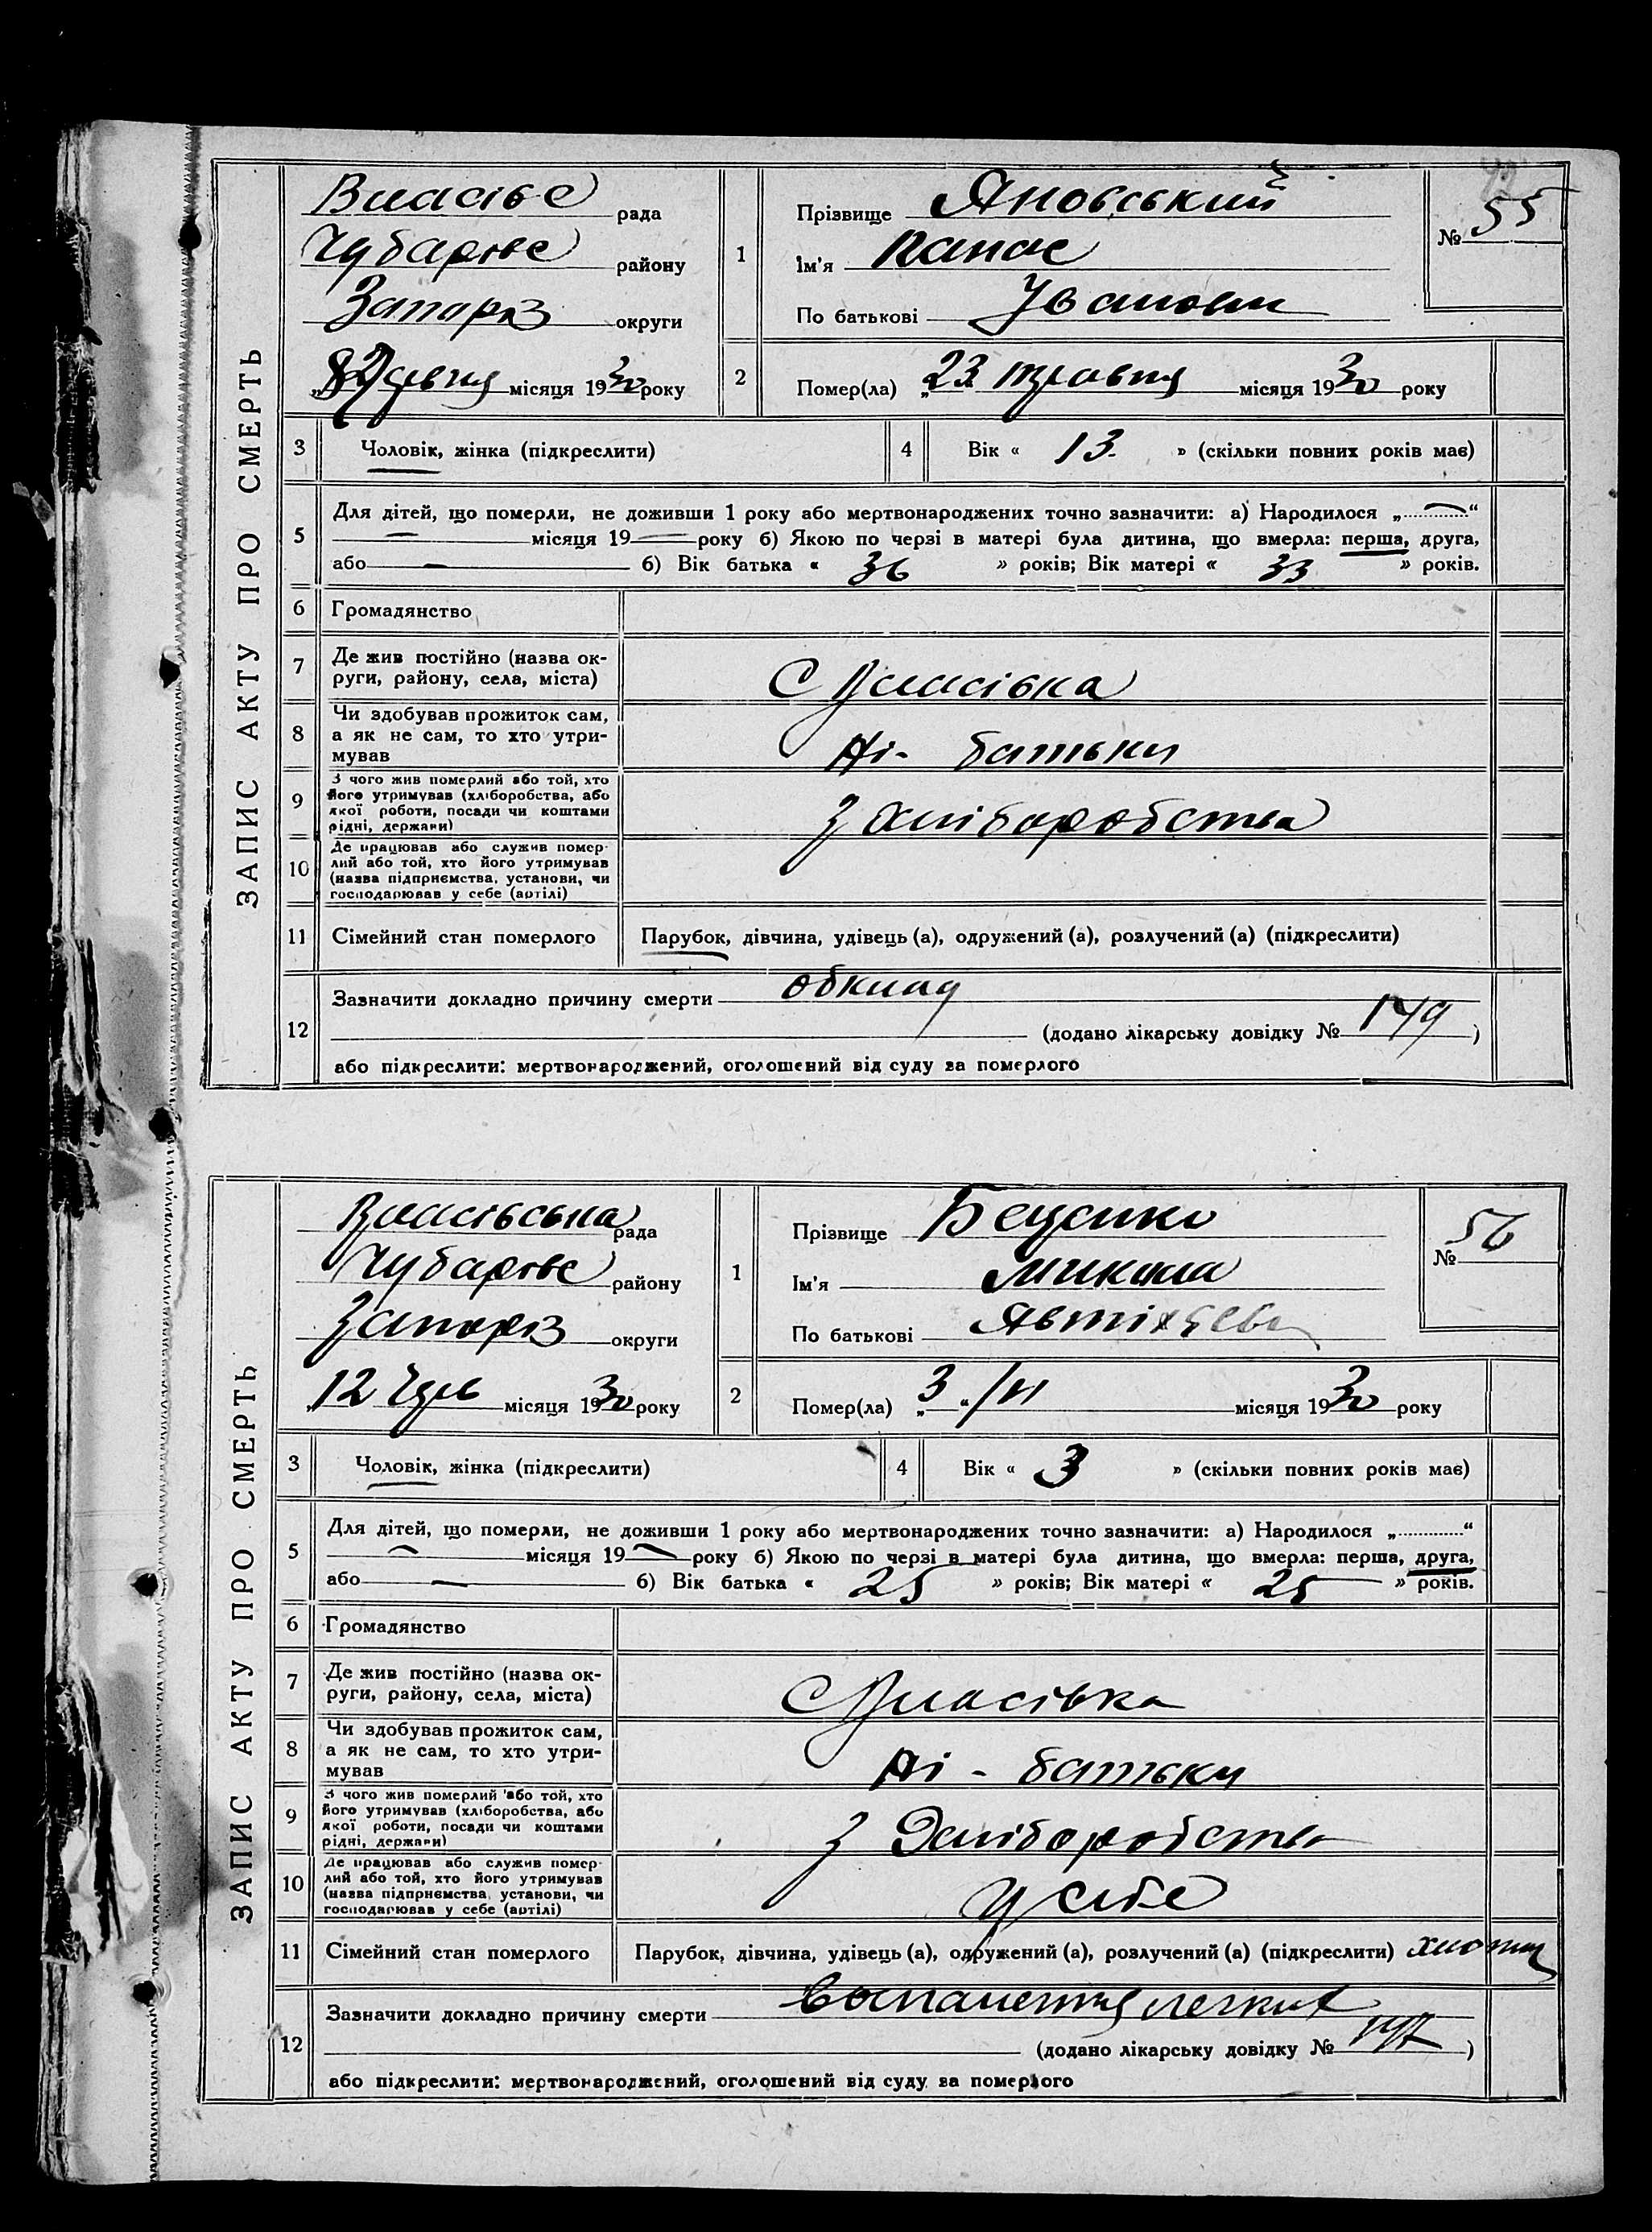 ЗАПИС АКТУ ПРО СМЕРТЬ
Власівс рада
Чубарівс району
Запоріз округи
червня місяця 1930 року
1
Прізвище Яновський
Ім'я Панас
По батькові Іванови
№ 55
2
Помер(ла) „23 травня місяця 1930 року
3 Чоловік, жінка (підкреслити)
4 Вік « 13 » (скільки повних років має)
5
Для дітей, що померли, не доживши 1 року або мертвонароджених точно зазначити: а) Народилося „ — “
— місяця 19 — року б) Якою по черзі в матері була дитина, що вмерла: перша, друга,
або — б) Вік батька « 36 » років; Вік матері « 33 » років.
6 Громадянство
7
Де жив постійно (назва ок-
руги, району, села, міста)
С Власівка
8
Чи здобував прожиток сам,
а як не сам, то хто утри-
мував
Ні - батьки
9
З чого жив померлий або той, хто
його утримував (хліборобства, або
якої роботи, посади чи коштами
рідні, держави)
З хліборобства
10
Де працював або служив помер-
лий або той, хто його утримував
(назва підприємства, установи, чи
господарював у себе (артілі)
11 Сімейний стан померлого
Парубок, дівчина, удівець (а), одружений (а), розлучений (а) (підкреслити)
12
Зазначити докладно причину смерти
(додано лікарську довідку № 149 )
або підкреслити: мертвонароджений, оголошений від суду за померлого
ЗАПИС АКТУ ПРО СМЕРТЬ
Власівська рада
Чубарівс району
Запоріз округи
„12 Черв місяця 1930 року
1
Прізвище Беценко
Ім'я Микола
По батькові
№ 56
2
Помер(ла) „3“/VI місяця 1930 року
3 Чоловік, жінка (підкреслити)
4 Вік « 3 » (скільки повних років має)
5
Для дітей, що померли, не доживши 1 року або мертвонароджених точно зазначити: а) Народилося „ “
— місяця 19 — року б) Якою по черзі в матері була дитина, що вмерла: перша, друга,
або — б) Вік батька « 25 » років; Вік матері « 25 » років.
6 Громадянство
7
Де жив постійно (назва ок-
руги, району, села, міста)
С Власівка
8
Чи здобував прожиток сам,
а як не сам, то хто утри-
мував
Ні - батьки
9
З чого жив померлий або той, хто
його утримував (хліборобства, або
якої роботи, посади чи коштами
рідні, держави)
З Хліборобства
10
Де працював або служив помер-
лий або той, хто його утримував
(назва підприємства, установи, чи
господарював у себе (артілі)
У себе
11 Сімейний стан померлого
Парубок, дівчина, удівець (а), одружений (а), розлучений (а) (підкреслити)
12
Зазначити докладно причину смерти воспаления легких
(додано лікарську довідку № )
або підкреслити: мертвонароджений, оголошений від суду за померлого